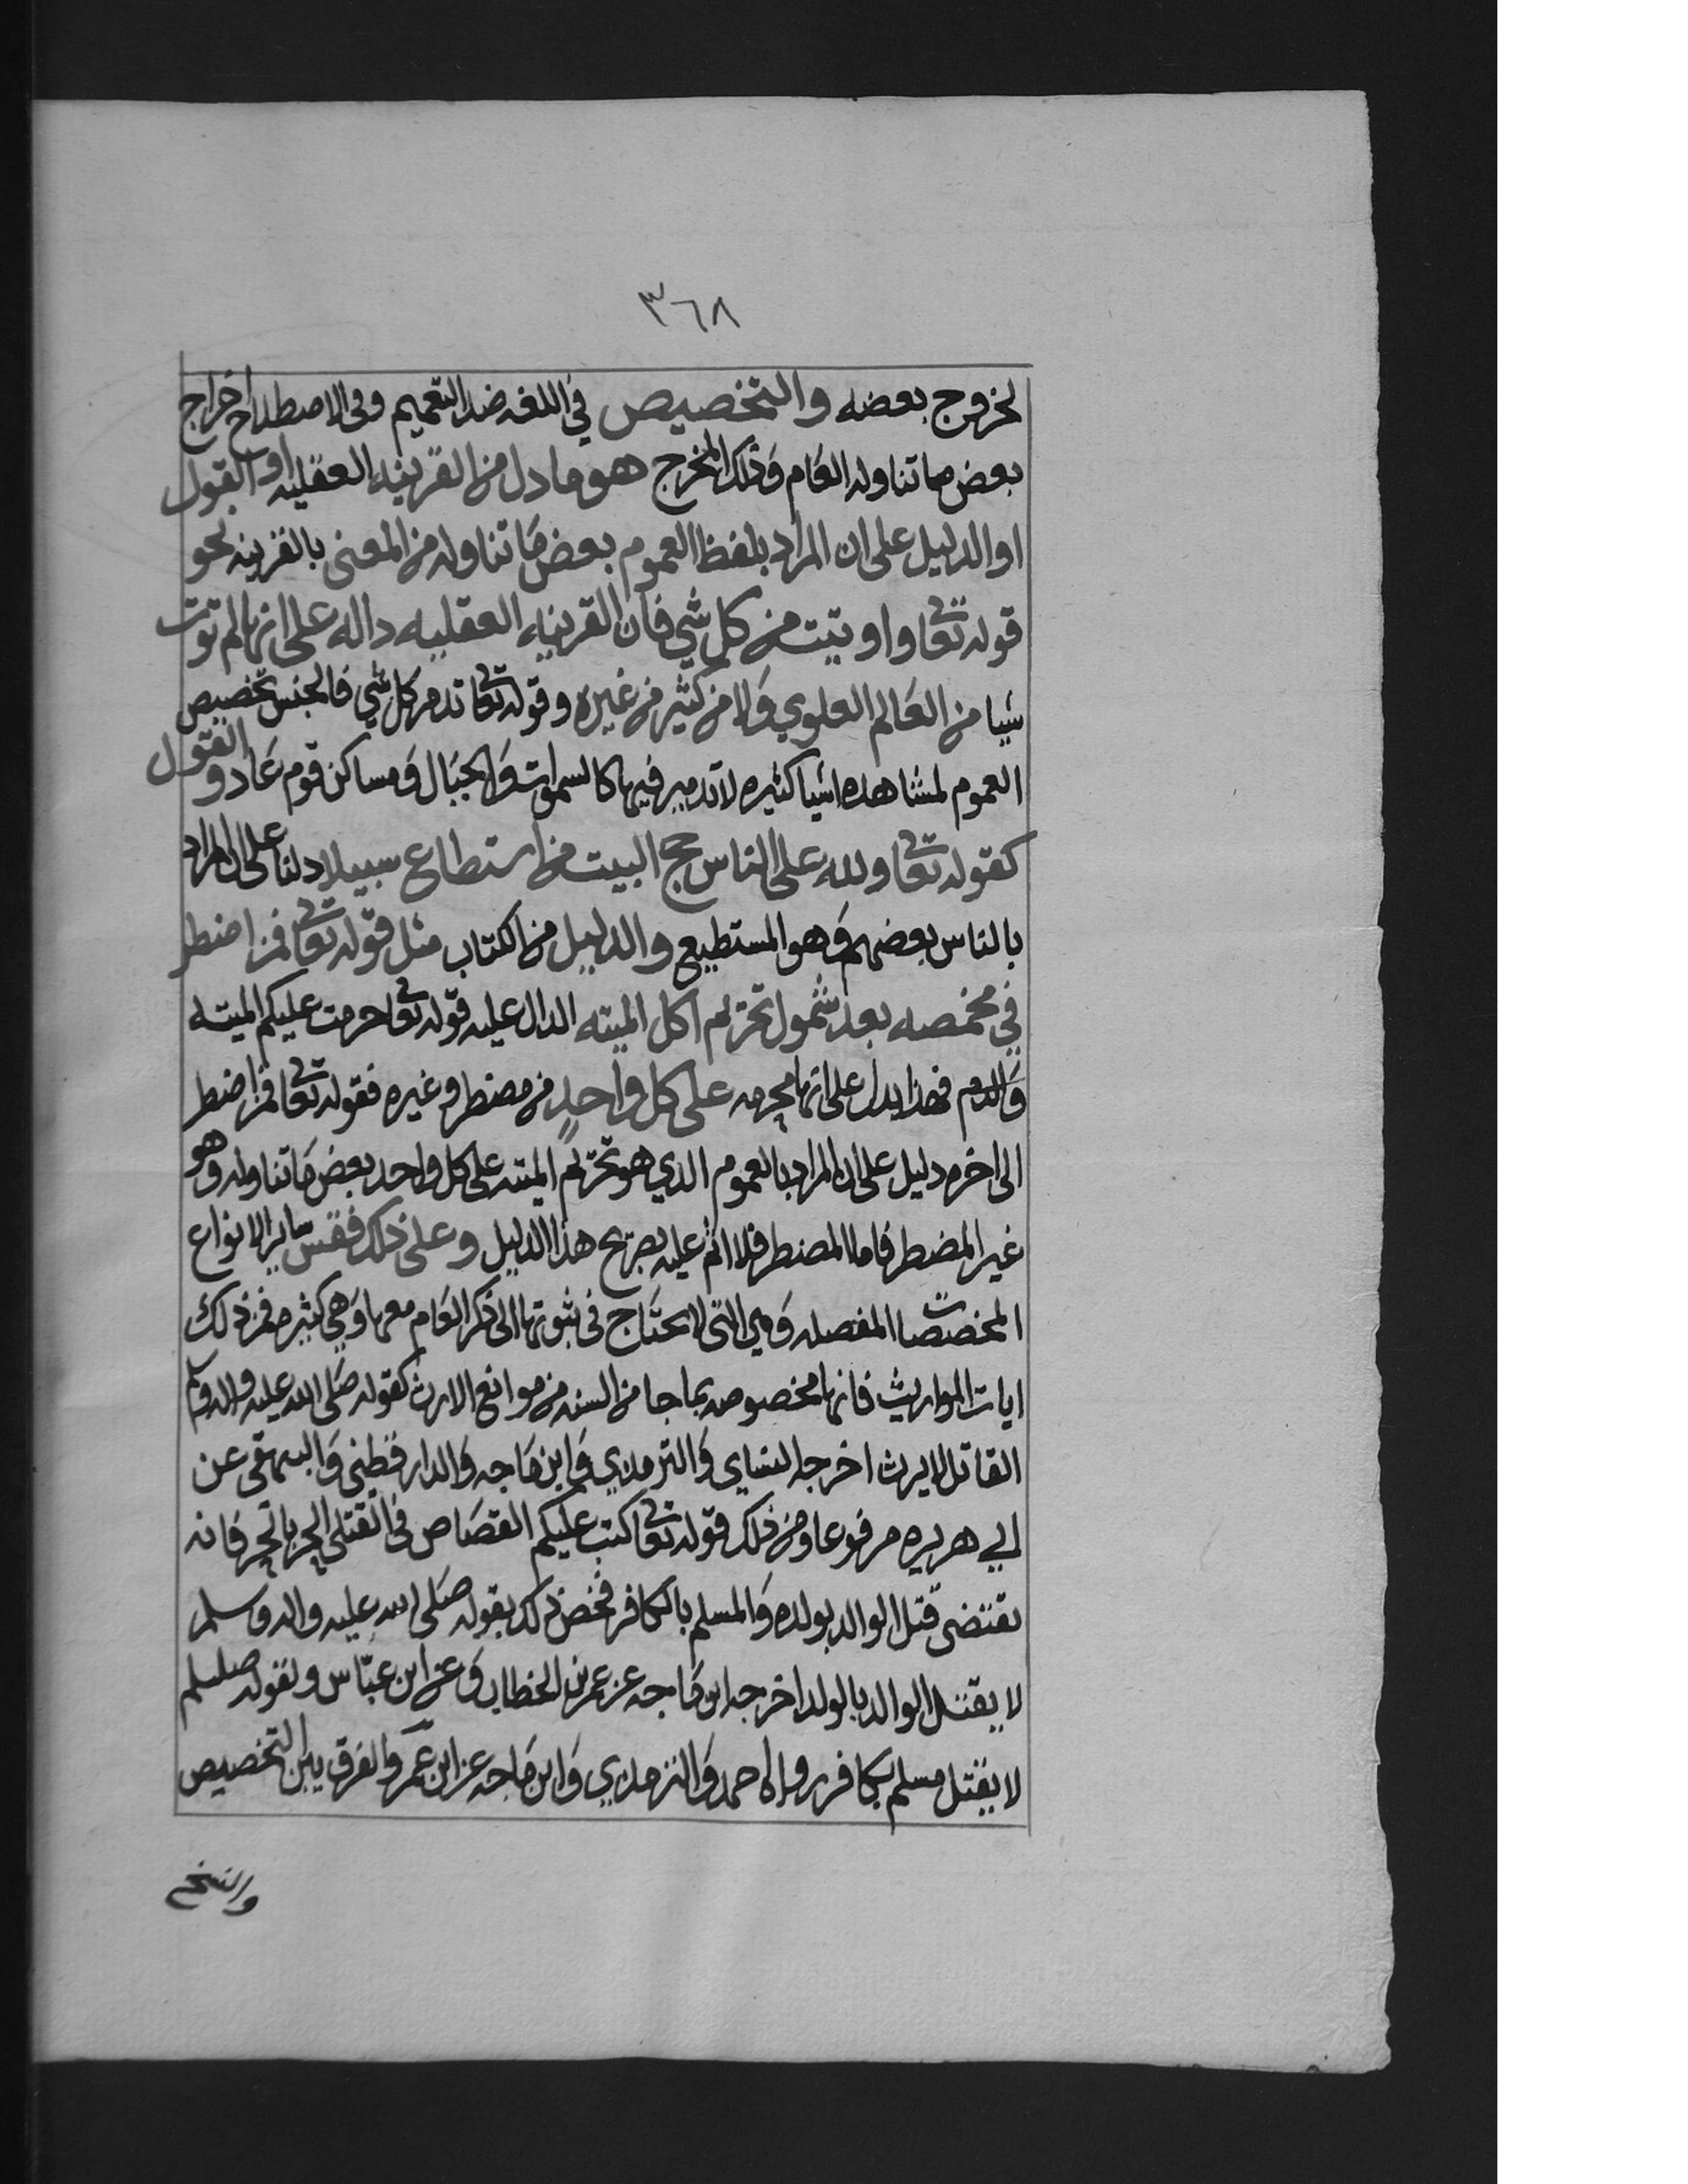 ٣٦٨
لخروج بعضه والتخصيص في اللغه ضد التعميم وفى الاصطلاح اخراج
بعض ما تناوله العام وذلك المخرج هو ما دل من القرينه العقليه او القول
او الدليل على ان المراد بلفظ العموم بعض ما تناوله من المعنى بالقرينه نحو
قوله تعا واوتيت من كل شي فان القرينه العقليه داله على انها لم توت
شيا من العالم العلوي ولا من كثير من غيره وقوله تعا تدمر كل شي فالحس تخصيص
العموم لمشاهده اشيا كثيره لا تدمير فيها كالسموات والجبال ومساكن قوم عاد والقول
كقوله تعا ولله على الناس حج البيت من استطاع سبيلا دلنا على ان المراد
بالناس بعضهم وهو المستطيع والدليل من الكتاب مثل قوله تعا فمن اضطر
في مخمصه بعد شمول تحريم اكل الميته الدال عليه قوله تعا حرمت عليكم الميته
والدم فهذا يدل على انها محرمه على كل واحدٍ من مضطر وغيره فقوله تعا فمن اضطر
الى اخره دليل على ان المراد بالعموم الذي هو تحريم الميته على كل واحد بعض ما تناوله وهو
غير المضطر فاما المضطر فلا اثم عليه بصريح هذا الدليل وعلى ذلك فقس ساير الانواع
المخصصات المفصله وهي التي لا يحتاج فى ثبوتها الى ذكر العام معها وهي كثيره فمن ذلك
ايات المواريث فانها مخصوصه بما جا من السنه من موانع الارث كقوله صلى الله عليه واله وسلم
القاتل لا يرث اخرجه النساي والترمذي وابن ماجه والدارقطني والبيهقى عن
ابي هريره مرفوعا ومن ذلك قوله تعا كتب عليكم القصاص فى القتلى الحر بالحر فانه
يقتضى قتل الوالد بولده والمسلم بالكافر فخص ذلك بقوله صلى الله عليه واله وسلم
لا يقتل الوالد بالولد اخرجه ابن ماجه عن عمر بن الخطاب وعن ابن عباس وبقوله صلسلم
لا يقتل مسلم بكافر رواه احمد والترمذي وابن ماجه عن ابن عمر والفرق بين التخصيص
والنسخ